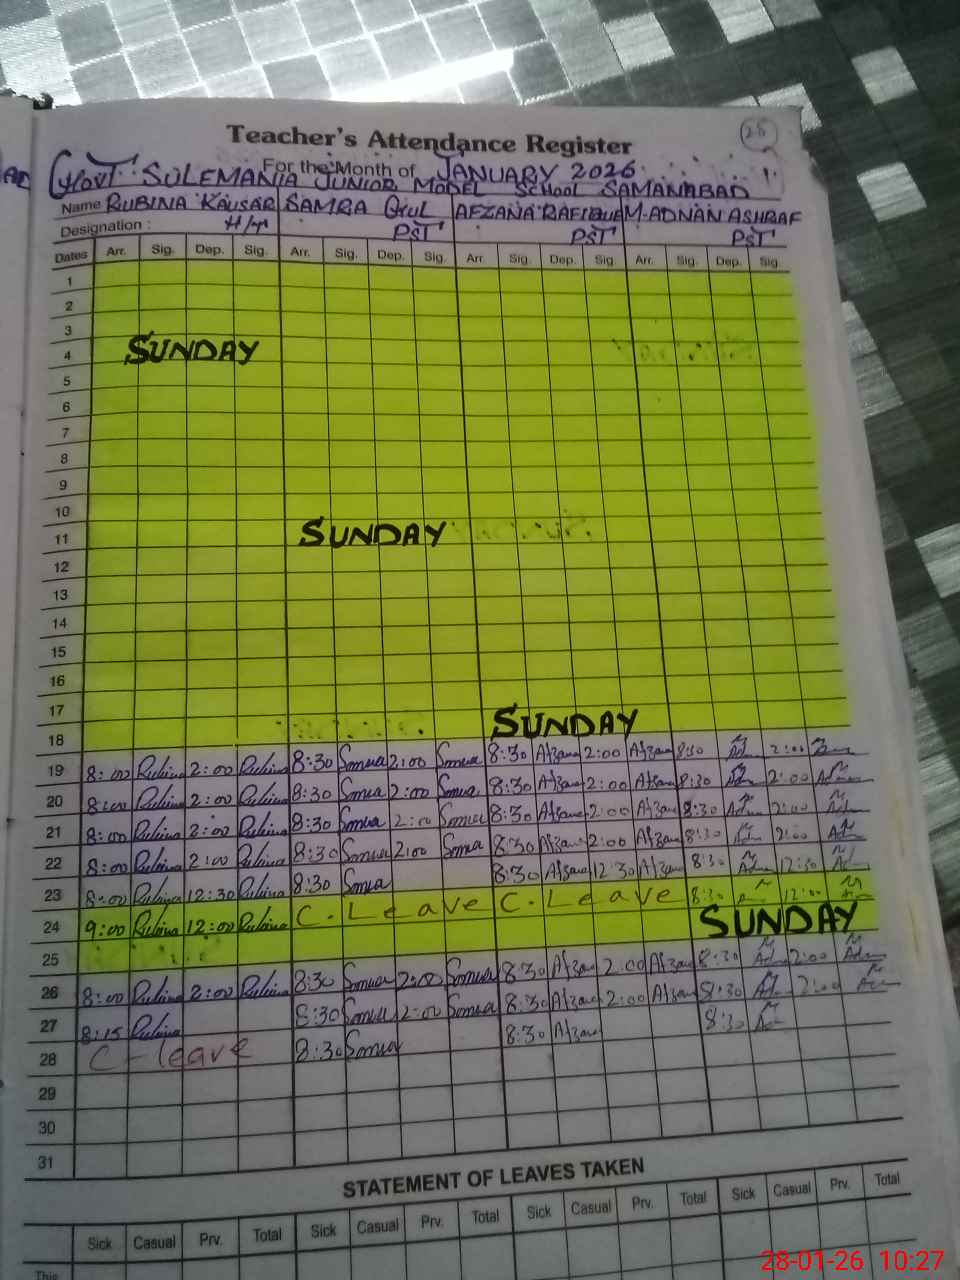 28
Teacher's Attendance Register
For the Month of JANUARY 2026
Govt SULEMANIA JUNIOR MODEL SCHOOL SAMANABAD
Name RUBINA KAUSAR SAMRA GUL AFZANA RAFIQUE M.ADNAN ASHRAF
Designation : H/T PST PST PST
Dates Arr. Sig. Dep. Sig. Arr. Sig. Dep. Sig. Arr. Sig. Dep. Sig. Arr. Sig. Dep. Sig.
1
2
3
4 SUNDAY
5
6
7
8
9
10
11 SUNDAY
12
13
14
15
16
17
18 SUNDAY
19 8:00 Rubina 2:00 Rubina 8:30 Samra 2:00 Samra 8:30 Afzana 2:00 Afzana 8:30 2:00
20 8:00 Rubina 2:00 Rubina 8:30 Samra 2:00 Samra 8:30 Afzana 2:00 Afzana 8:30 2:00
21 8:00 Rubina 2:00 Rubina 8:30 Samra 2:00 Samra 8:30 Afzana 2:00 Afzana 8:30 2:00
22 8:00 Rubina 2:00 Rubina 8:30 Samra 2:00 Samra 8:30 Afzana 2:00 Afzana 8:30 2:00
23 8:00 Rubina 12:30 Rubina 8:30 Samra 8:30 Afzana 12:30 Afzana 8:30 12:30
24 9:00 Rubina 12:00 Rubina C. Leave C. Leave 8:30 12:00
25 SUNDAY
26 8:00 Rubina 2:00 Rubina 8:30 Samra 2:00 Samra 8:30 Afzana 2:00 Afzana 8:30 2:00
27 8:15 Rubina 8:30 Samra 2:00 Samra 8:30 Afzana 2:00 Afzana 8:30 2:00
28 C-leave 8:30 Samra 8:30 Afzana 8:30
29
30
31
STATEMENT OF LEAVES TAKEN
Sick Casual Prv. Total Sick Casual Prv. Total Sick Casual Prv. Total Sick Casual Prv. Total
This
28-01-26 10:27